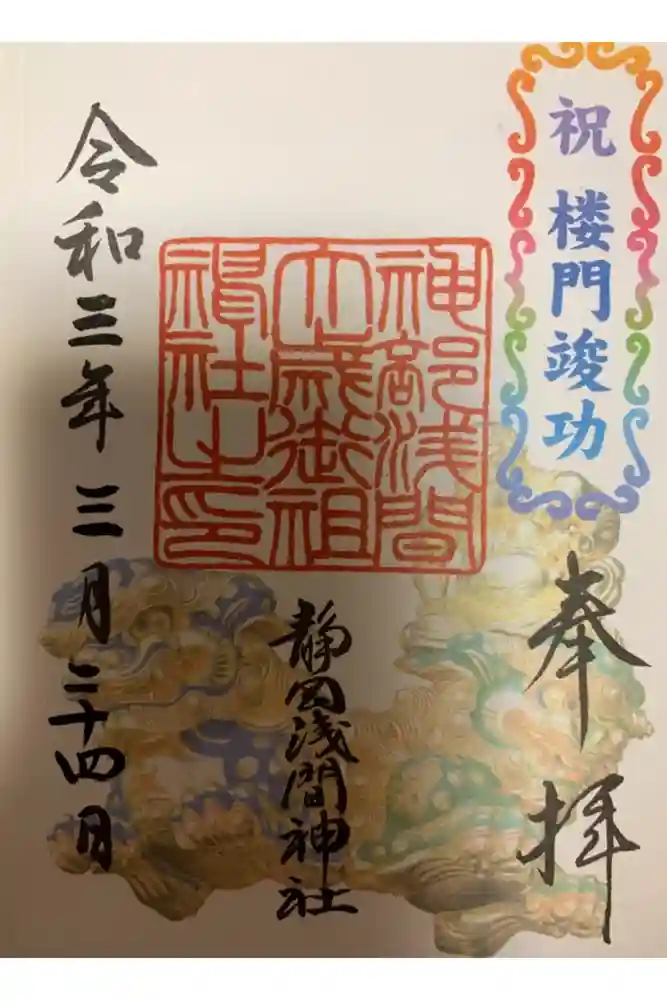 祝 楼門竣功
奉拝
神部浅間
大歳御祖
神社之印
静岡浅間神社
令和三年 三月二十四日